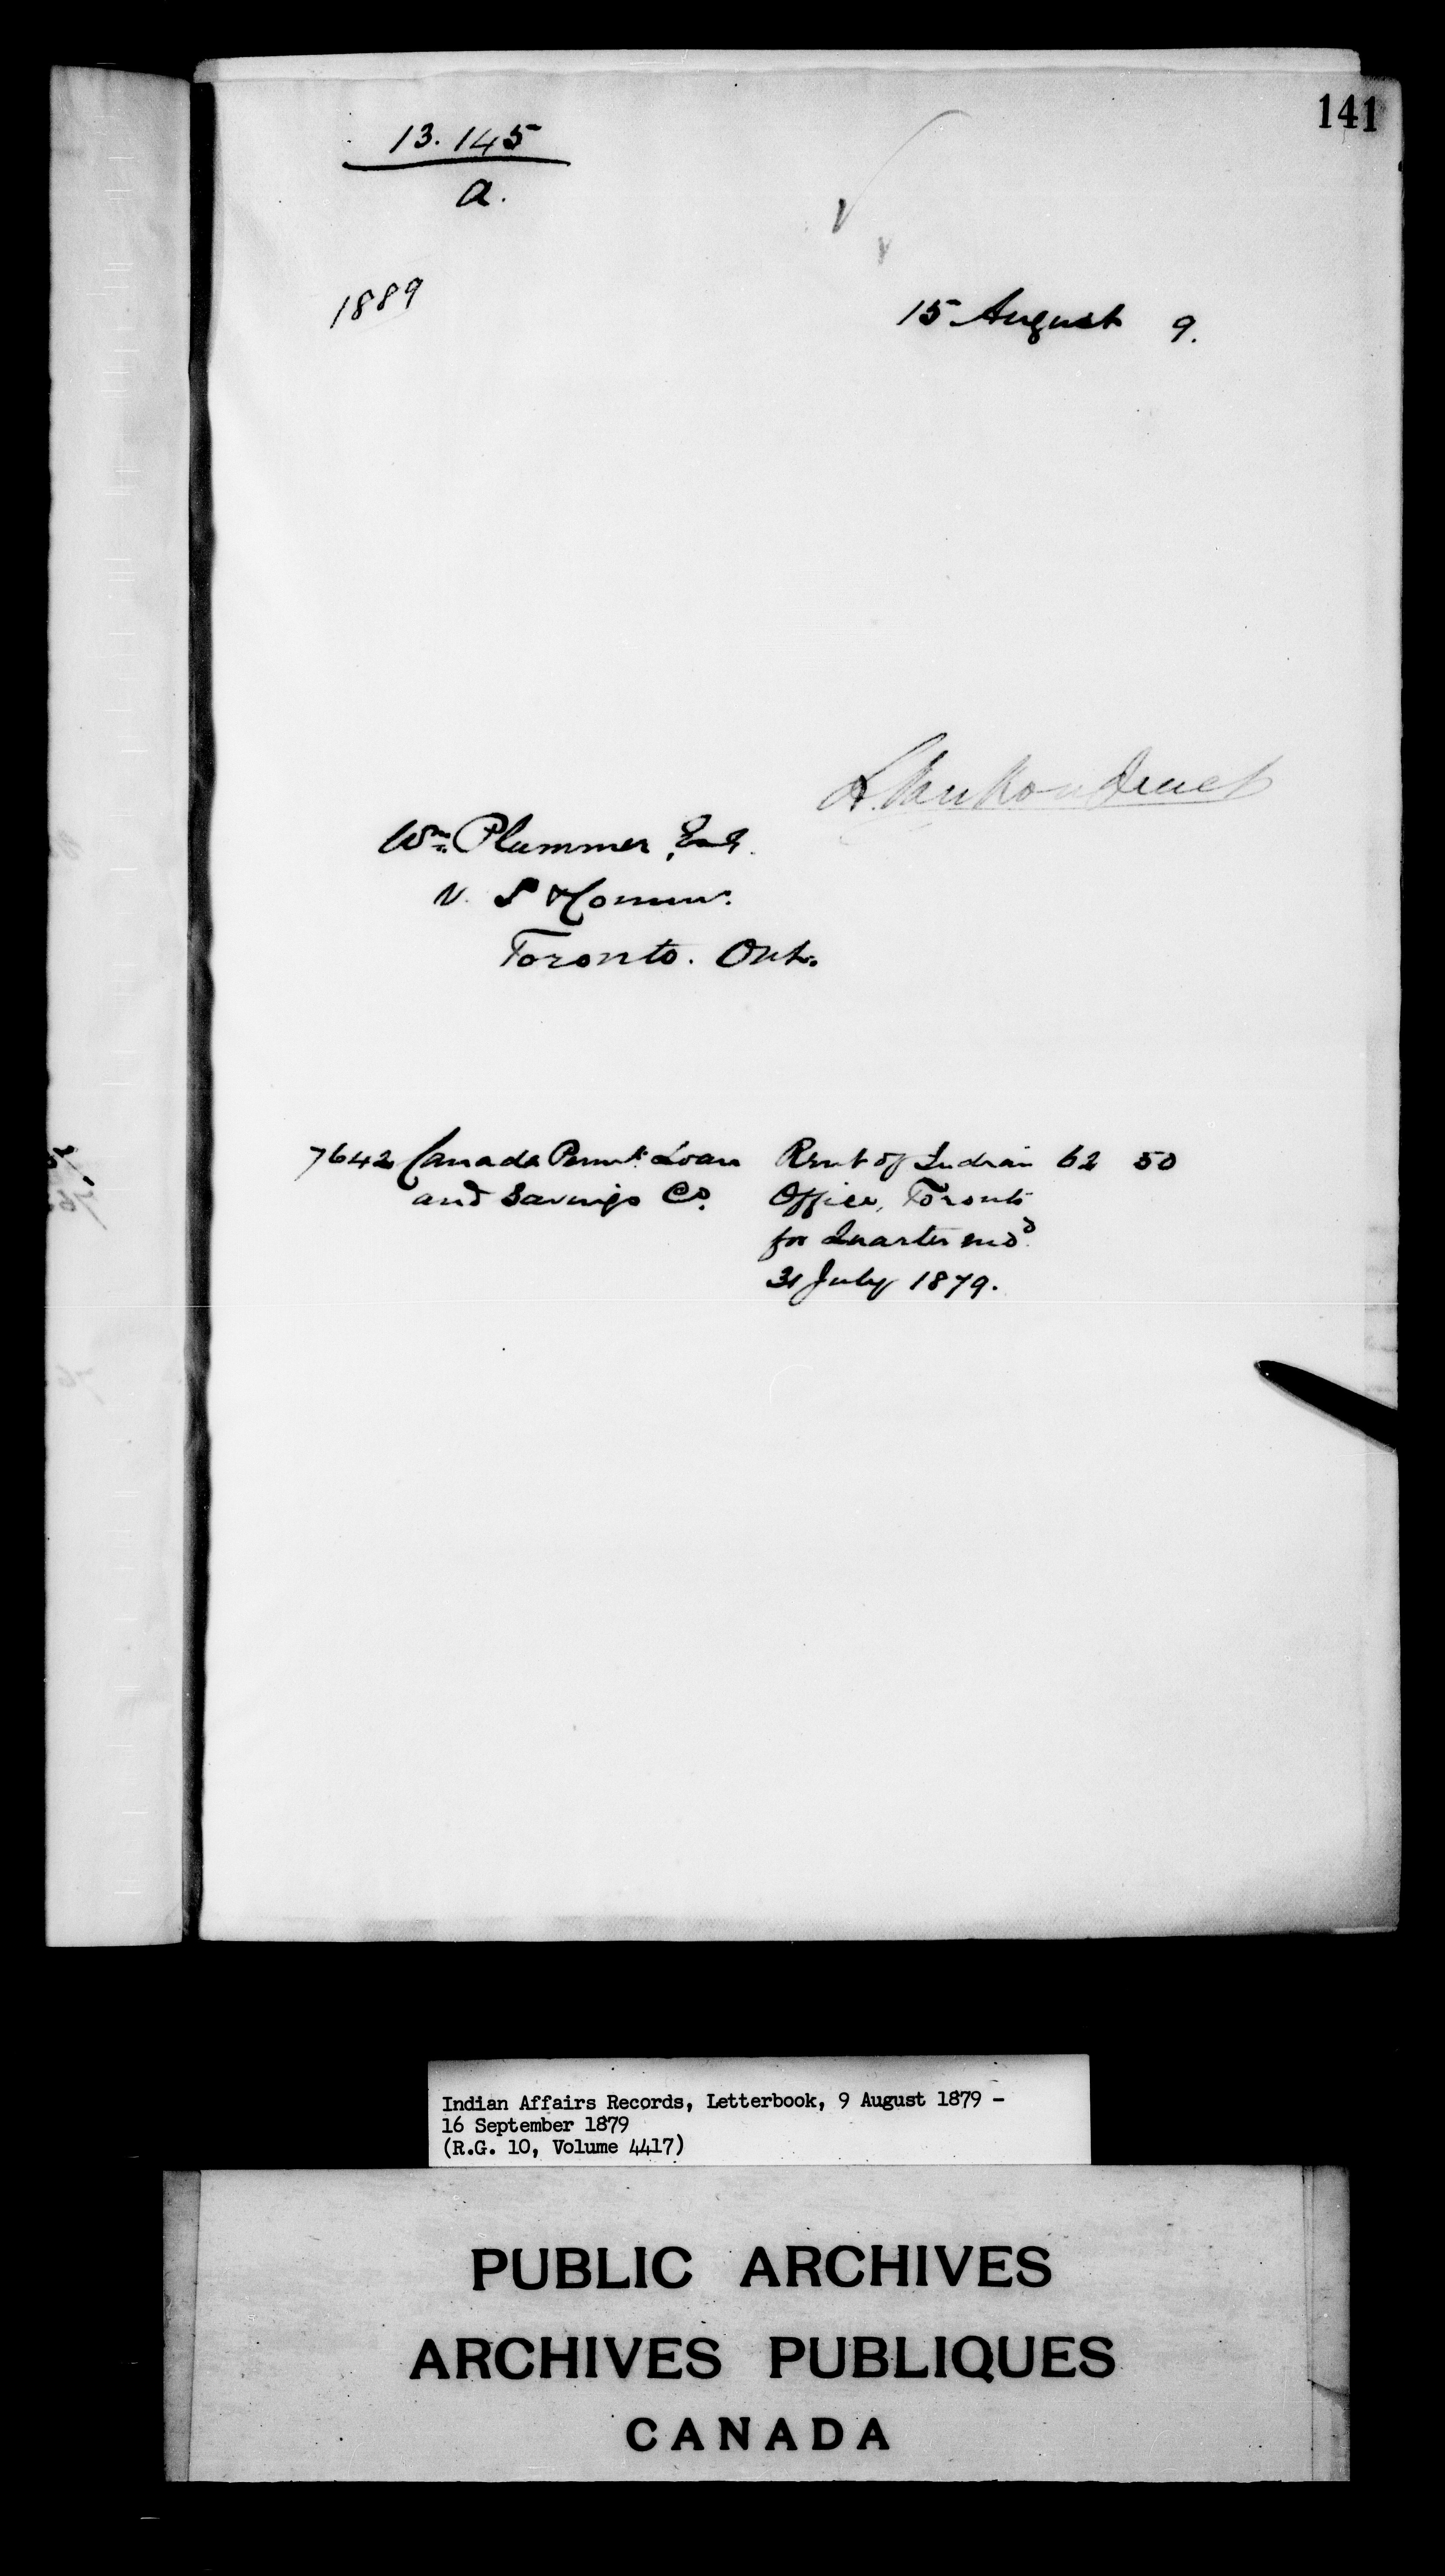 141
13.145
a.
1889
15 August 9.
L. Vankoughnet
Wm. Plummer, Esq.
V. S & Commr.
Toronto. Ont.
7642 Canada Permt. Loan Rent of Indian 62 50
and Savings Co. Office, Toronto
for Quarter end'd.
31 July 1879.
Indian Affairs Records, Letterbook, 9 August 1879 -
16 September 1879
(R.G. 10, Volume 4417)
PUBLIC ARCHIVES
ARCHIVES PUBLIQUES
CANADA